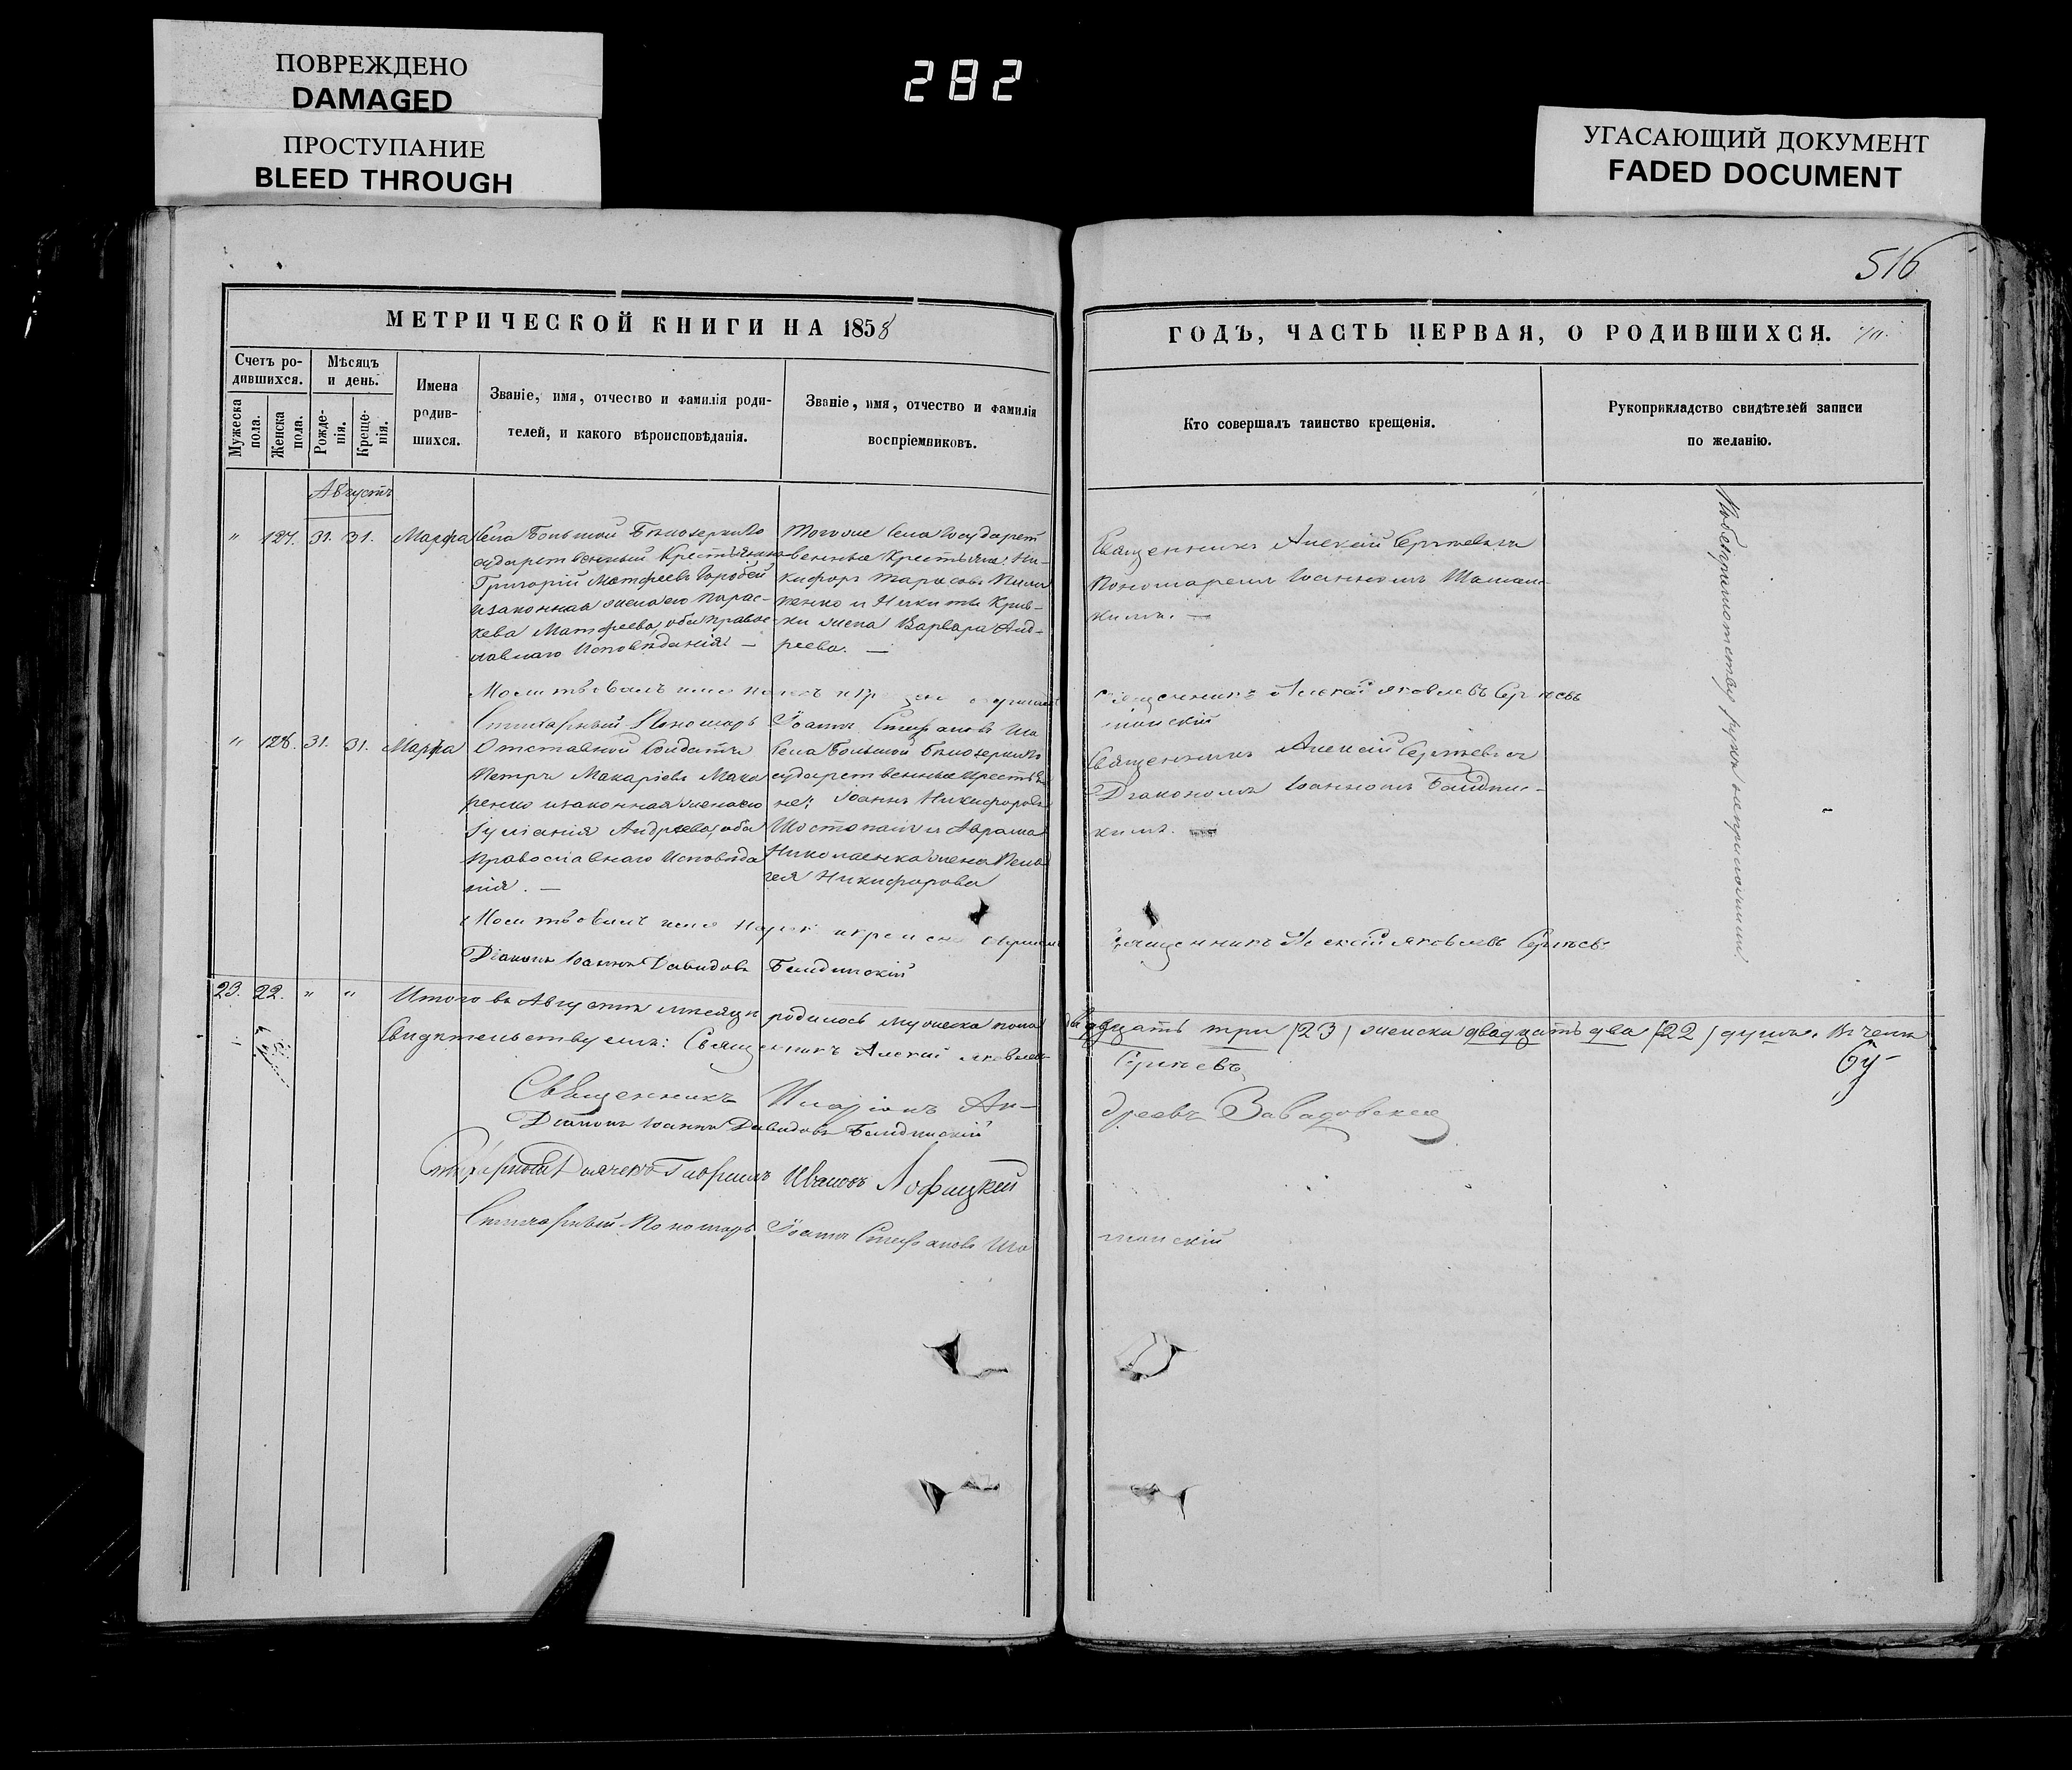 ПОВРЕЖДЕНО
DAMAGED
ПРОСТУПАНИЕ
BLEED THROUGH
282
УГАСАЮЩИЙ ДОКУМЕНТ
FADED DOCUMENT
516
МЕТРИЧЕСКОЙ КНИГИ НА 1858
ГОДЪ, ЧАСТЬ ПЕРВАЯ, О РОДИВШИХСЯ.
Счетъ ро-
дившихся.
Мужеска
пола.
Женска
пола.
Мѣсяцъ
и день.
Рожде-
нія.
Креще-
нія.
Имена
родив-
шихся.
Званіе, имя, отчество и фамилія роди-
телей, и какого вѣроисповѣданія.
Званіе, имя, отчество и фамилія
воспріемниковъ.
Кто совершалъ таинство крещенія.
Рукоприкладство свидѣтелей записи
по желанію.
Августъ
" 127. 31. 31. Марфа
Села Большой Бѣлозерки Го
сударственный Крестьянинъ
Григорій Матфеевъ Горобей
и законная жена его Парас-
кева Матфеева, оба право-
славнаго Исповѣданія —
Тогоже Села Государст
венные Крестьяне: Ни-
кифоръ Тарасовъ Пили
пенко и Никиты Крив-
ки жена Варвара Анд-
реева. —
Священникъ Алексій Сергѣевъ съ
Пономаремъ Іоанномъ
кимъ. —
Молитвовалъ имя нарекъ
Священникъ Алексій Яковлевъ Сергѣевъ
Стихарный Пономарь Іоаннъ Стефановъ
" 128. 31. 31. Марфа
Отставной Солдатъ
Петръ Макаріевъ Мака
ренко и законная жена его
Іуліанія Андреева, оба
Православнаго Исповѣда
нія. —
Села Большой Бѣлозерки Го
сударственные Крестья
не: Іоаннъ Никифоровъ
Шостопалъ и Аврама
Николаенка жена Пела
гея Никифорова
Священникъ Алексій Сергѣевъ съ
Діакономъ Іоанномъ Балдин-
кимъ.
Молитвовалъ имя нарекъ и крещеніе совершилъ
Священникъ Алексій Яковлевъ Сергѣевъ
Діаконъ Іоаннъ Давидовъ Балдинскій
23. 22. " " Итого въ Августѣ мѣсяцѣ родилось мужеска пола двадцать три (23) женска двадцать два (22) душъ. Въ чемъ
Свидѣтельствуемъ: Священникъ Алексій Яковлевъ Сергѣевъ
Священникъ Иларіонъ Андреевъ Завадовскій
Діаконъ Іоаннъ Давидовъ Балдинскій
Стихарный Дьячекъ Гавріилъ Ивановъ Лофицкій
Стихарный Пономарь Іоаннъ Стефановъ